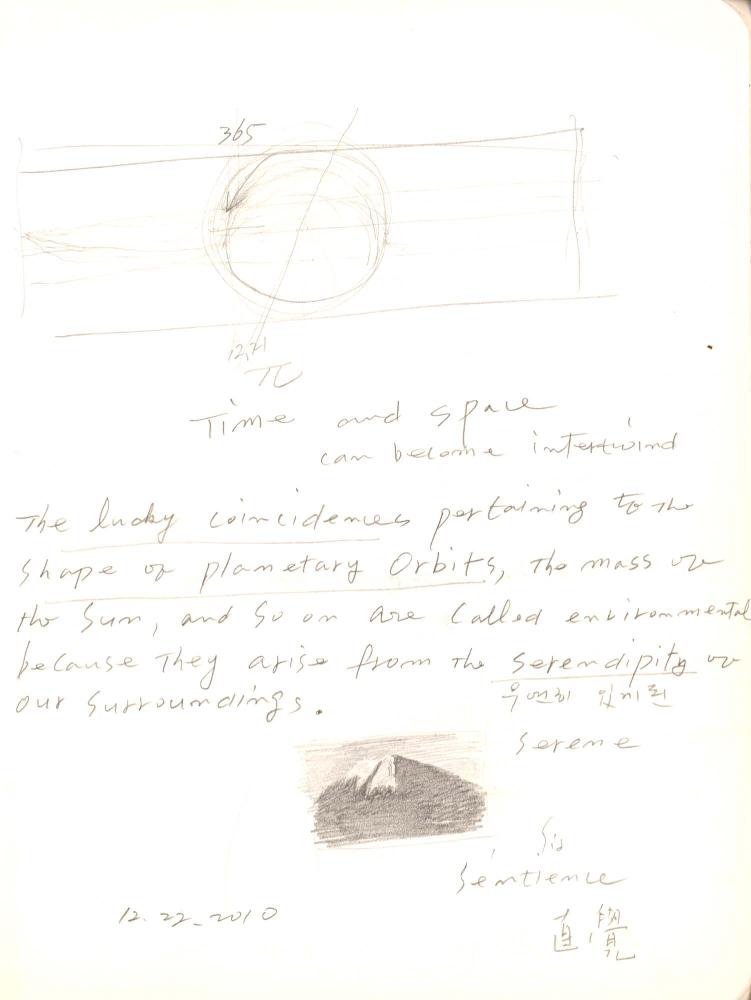 365
12,21
π
Time and space
can become intertwind
The lucky coincidences pertaining to the
shape of planetary Orbits, the mass of
the Sun, and so on are called environmental
because they arise from the serendipity of
our surroundings.
우연히 있게된
serene
Sentience
直覺
12.22_2010